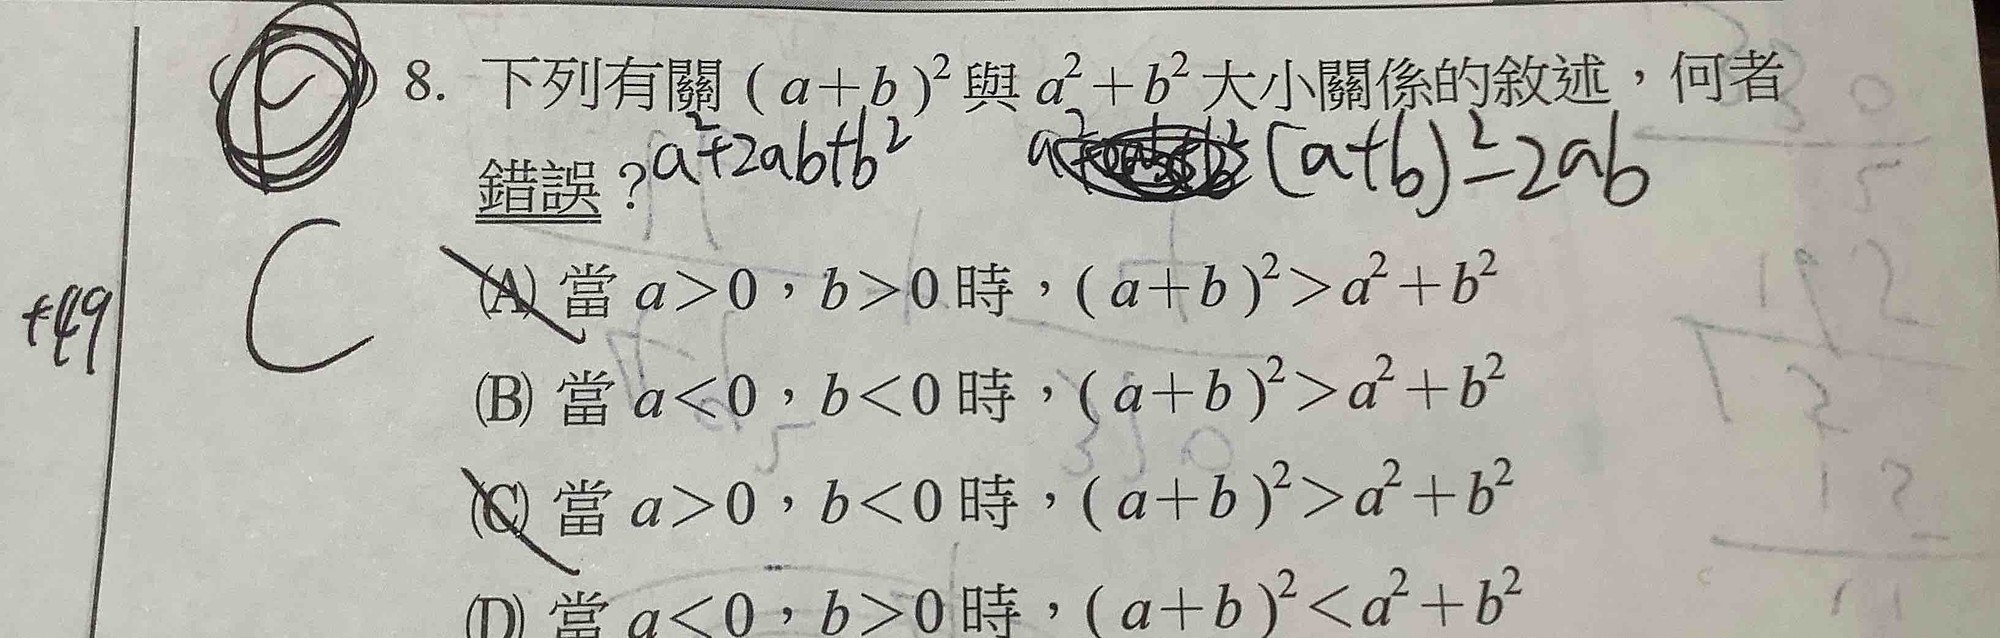 8. 下列有關 (a+b)² 與 a²+b² 大小關係的敘述，何者
a²+2ab+b² (a+b)²-2ab
錯誤？
C
(A) 當 a>0，b>0 時，(a+b)²>a²+b²
+49
(B) 當 a<0，b<0 時，(a+b)²>a²+b²
(C) 當 a>0，b<0 時，(a+b)²>a²+b²
(D) 當 a<0，b>0 時，(a+b)²<a²+b²